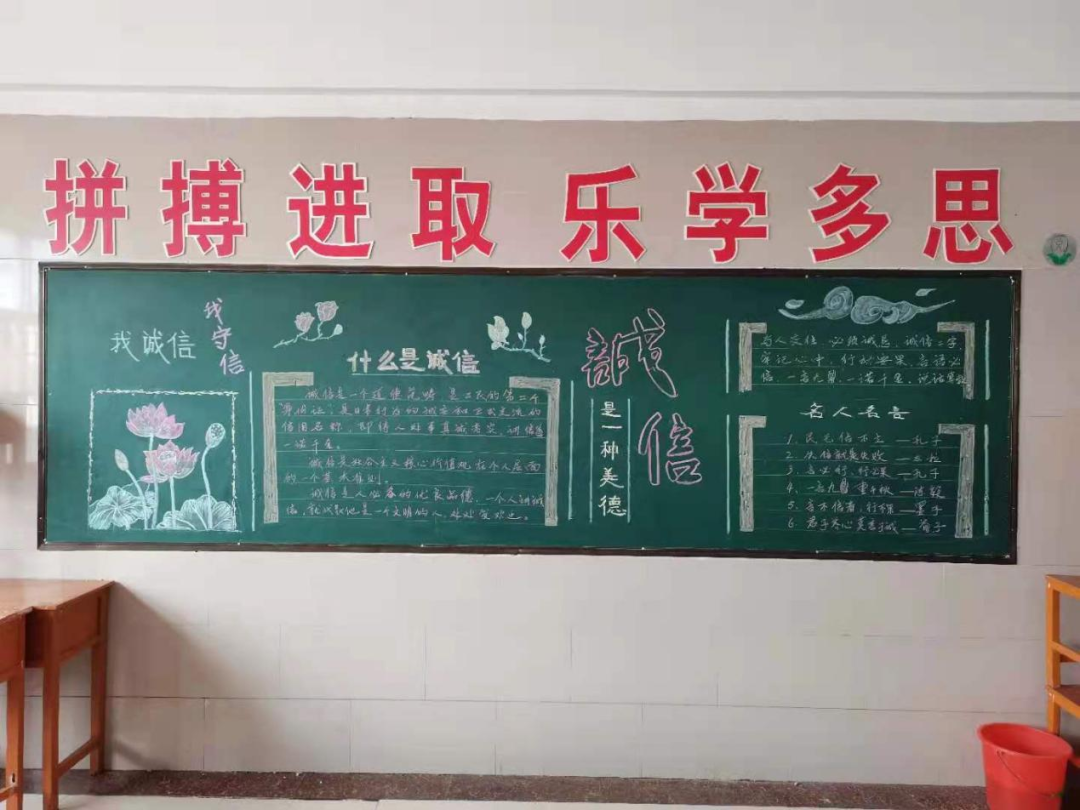 拼搏进取 乐学多思
我诚信
我守信
什么是诚信
诚信是一个道德范畴,是公民的第二个
身份证,是日常行为的诚实和正式交流的
信用名称,即待人处事真诚老实,讲信誉
一诺千金。
诚信是社会主义核心价值观在个人层面
的一个基本准则。
诚信是人必备的优良品德,一个人讲诚
信,就代表他是一个文明的人,处处受欢迎。
誠信
是一种美德
与人交往 必须诚恳,诚信二字
牢记心中,行
信,一言九鼎,一诺千金,说话算数
名人名言
1、民无信不立——孔子
2、失信就是失败——左拉
3、言必行,行必果——孔子
4、一言九鼎重千秋——陆毅
5、言不信者,行不果——墨子
6、君子养心莫善于诚——荀子